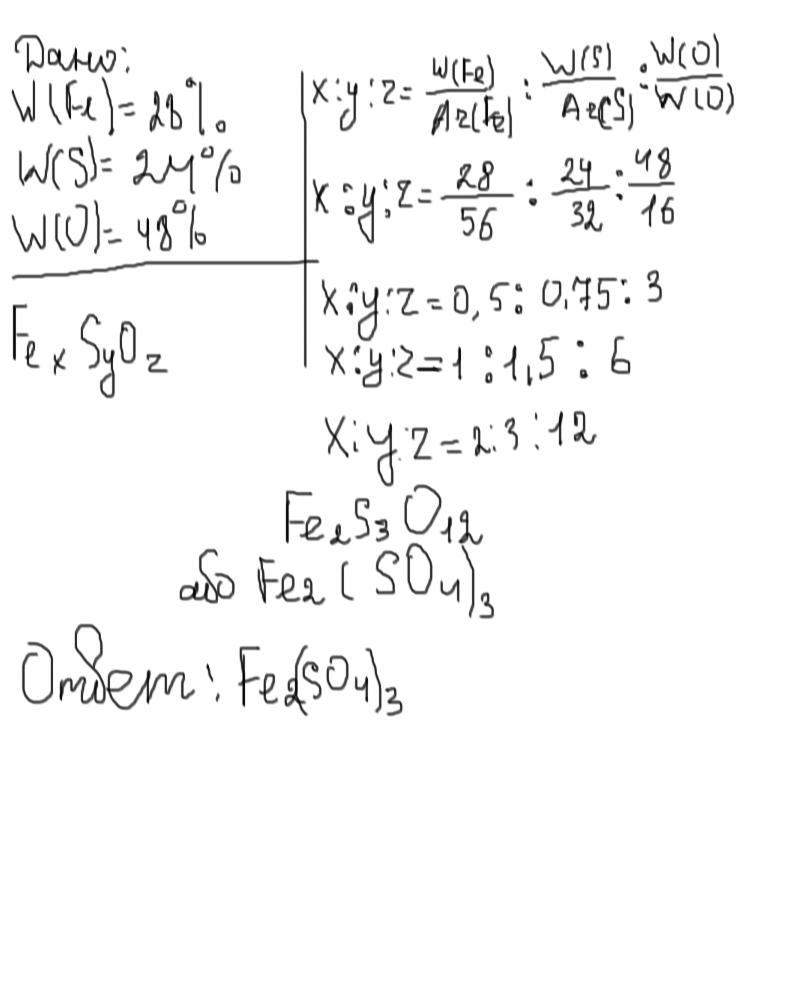 Дано:
W(Fe)=28%
W(S)=24%
W(O)=48%
Fe x S y O z
x:y:z= W(Fe)/Ar(Fe) : W(S)/Ar(S) : W(O)/W(O)
x:y:z= 28/56 : 24/32 : 48/16
x:y:z=0,5: 0,75: 3
x:y:z=1:1,5:6
x:y:z=2:3:12
Fe₂S₃O₁₂
або Fe₂(SO₄)₃
Ответ: Fe₂(SO₄)₃